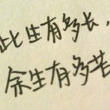 此生有多长，
余生有多苦